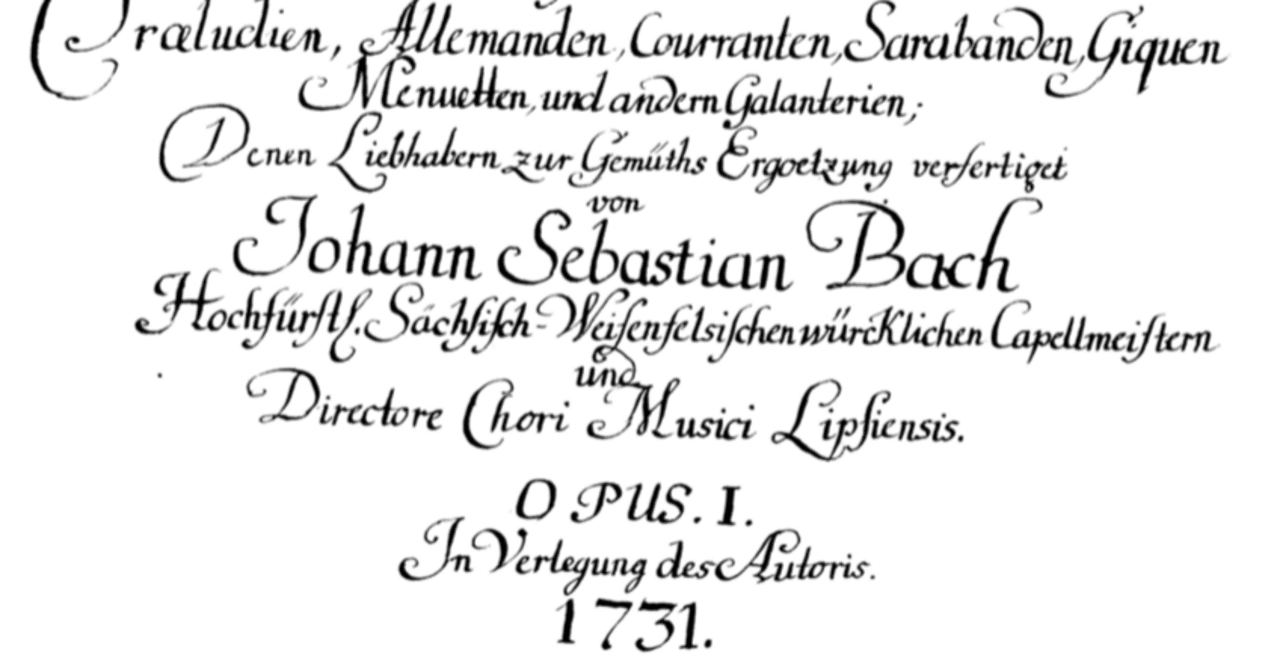 Præludien, Allemanden, Courranten, Sarabanden, Giquen
Menuetten, und andern Galanterien;
Denen Liebhabern zur Gemüths Ergoetzung verfertiget
von
Johann Sebastian Bach
Hochfürſtl. Sächſiſch-Weiſenfelsiſchen würcklichen Capellmeiſtern
und
Directore Chori Musici Lipſiensis.
OPUS. I.
In Verlegung des Autoris.
1731.